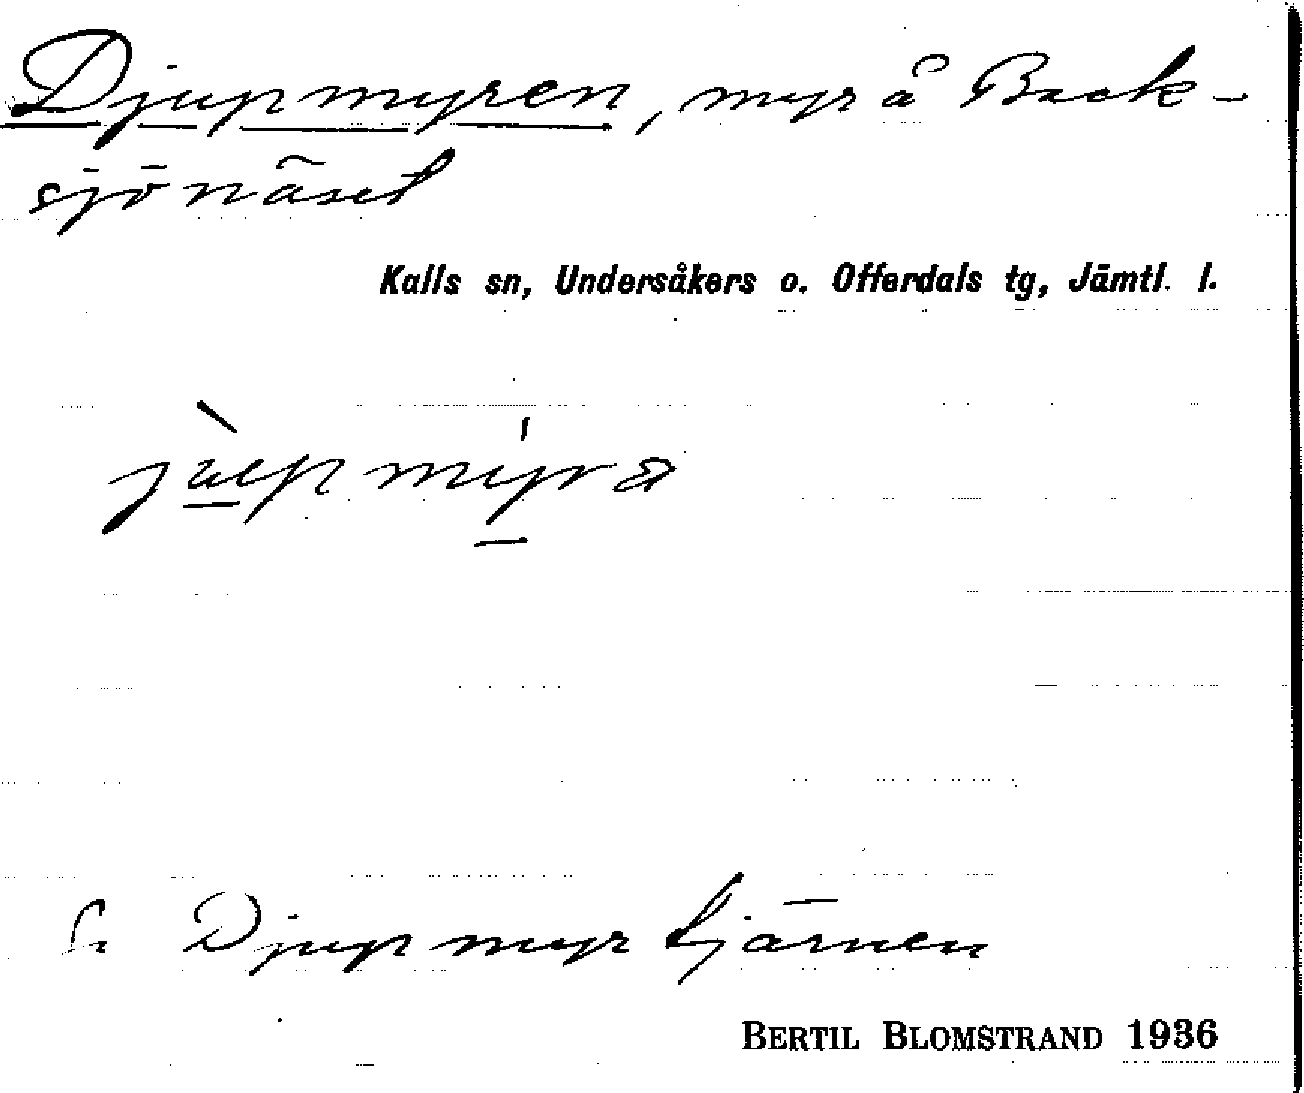 Djupmyren, myr å Back-
sjönäset
Kalls sn, Undersåkers o. Offerdals tg, Jämtl. l.
jùpmýra
Djupmyrtjärnen
BERTIL BLOMSTRAND 1936